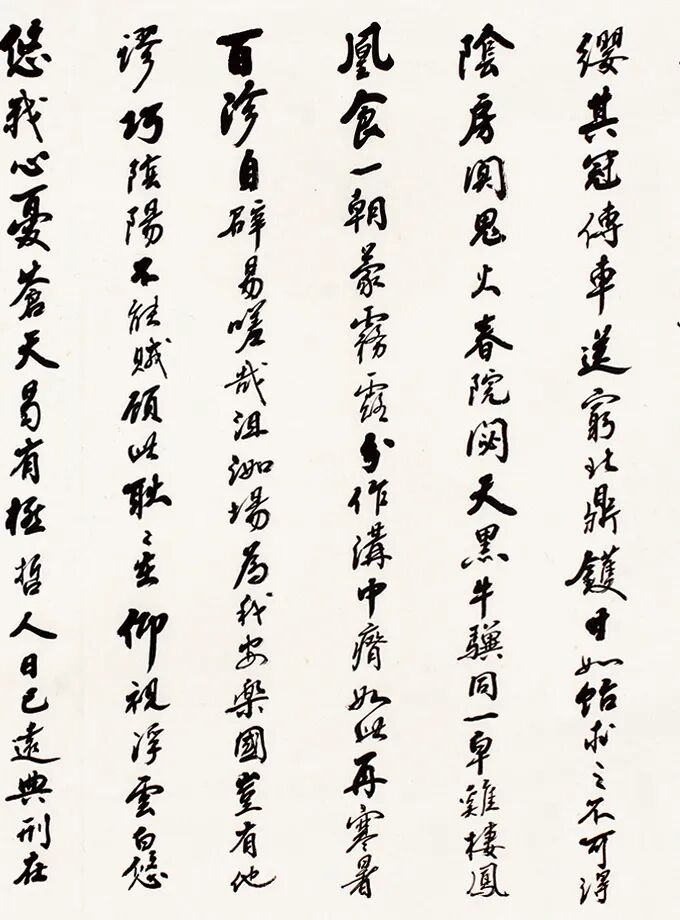 纓其冠傳車送窮北鼎鑊甘如飴求之不可得
陰房闃鬼火春院閟天黑牛驥同一皁雞棲鳳
凰食一朝蒙霧露分作溝中瘠如此再寒暑
百沴自辟易嗟哉沮洳場為我安樂國豈有他
謬巧陰陽不能賊顧此耿々在仰視浮雲白悠
悠我心憂蒼天曷有極哲人日已遠典刑在